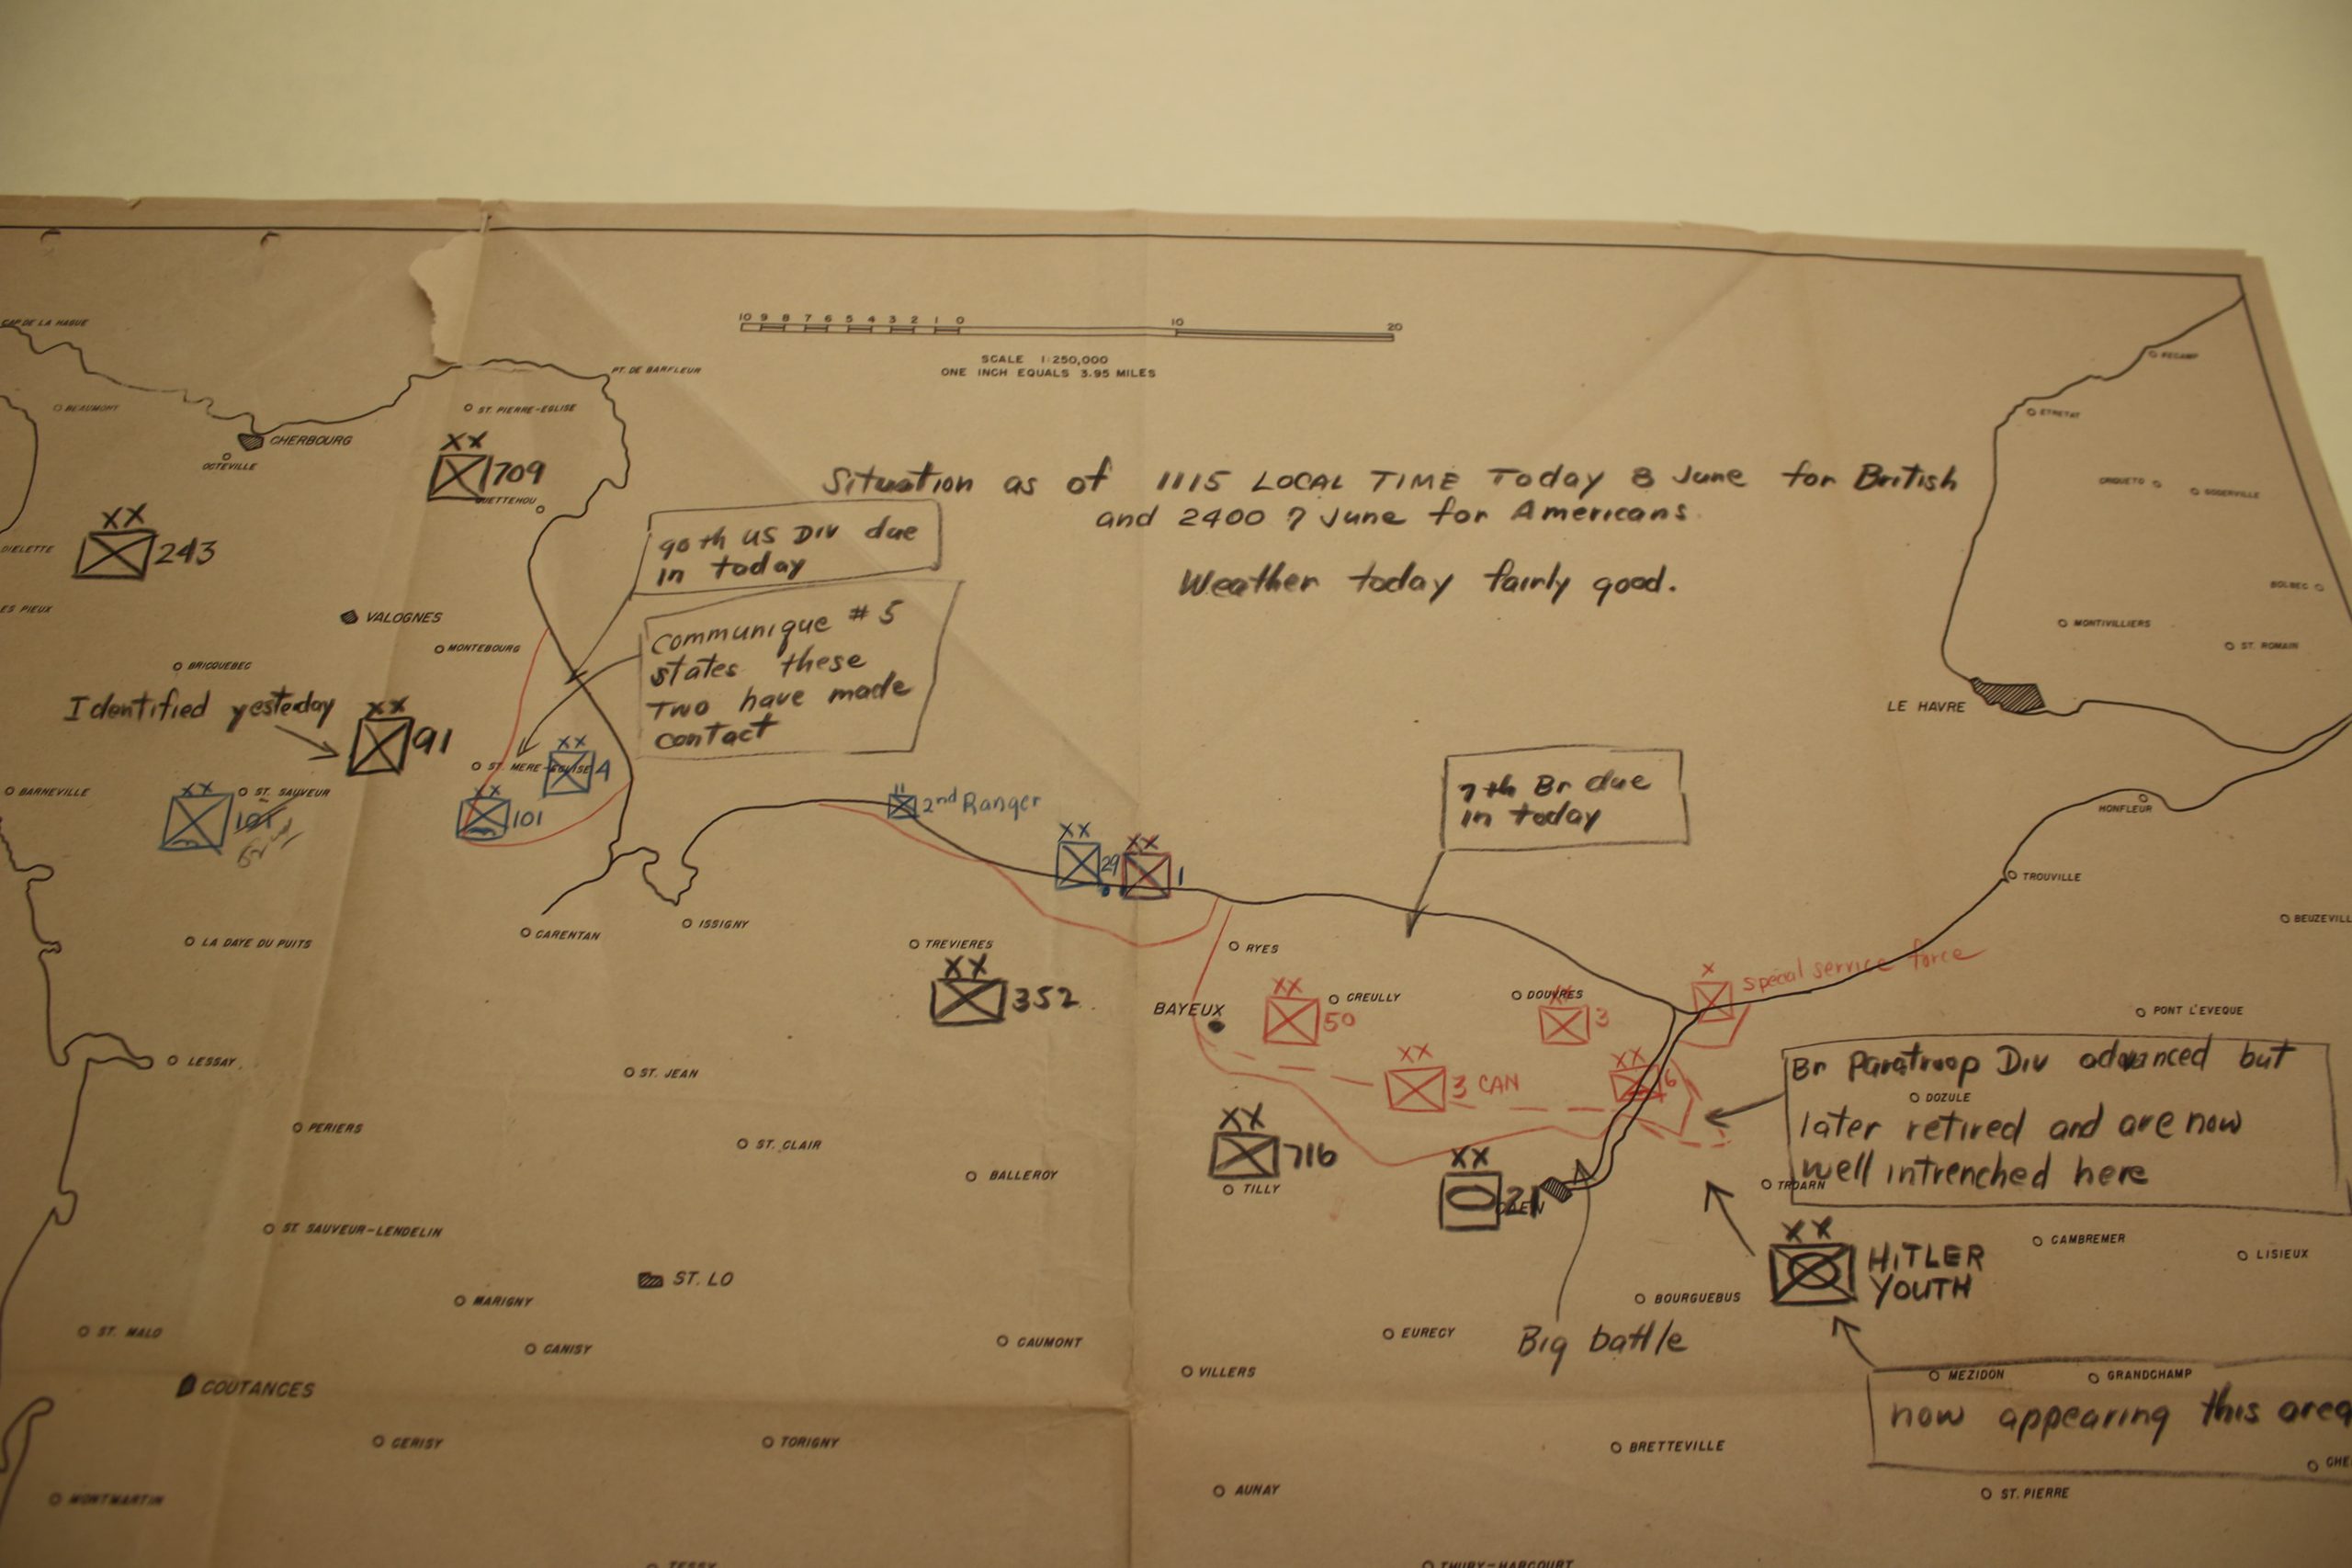 10 9 8 7 6 5 4 3 2 1 0 10 20
SCALE 1:250,000
ONE INCH EQUALS 3.95 MILES
CAP DE LA HAGUE
PT. DE BARFLEUR
FECAMP
BEAUMONT
ST. PIERRE-EGLISE
ETRETAT
CHERBOURG
OCTEVILLE
XX
709
Situation as of 1115 LOCAL TIME Today 8 June for British
and 2400 7 June for Americans
Weather today fairly good.
CRIQUETO
GODERVILLE
XX
243
DIELETTE
90th US Div due
in today
BOLBEC
ES PIEUX
VALOGNES
MONTEBOURG
Communique #5
states these
Two have made
contact
MONTIVILLIERS
ST. ROMAIN
BRICQUEBEC
Identified yesterday
XX
91
LE HAVRE
ST. MERE-EGLISE
XX
4
BARNEVILLE
ST. SAUVEUR
XX
101
XX
101
II
2nd Ranger
7th Br due
in today
HONFLEUR
XX
29
XX
1
TROUVILLE
BEUZEVILL
ISSIGNY
CARENTAN
LA DAYE DU PUITS
TREVIERES
RYES
XX
352
BAYEUX
XX
50
CREULLY
DOUVRES
XX
3
X
special service force
PONT L'EVEQUE
LESSAY
ST. JEAN
XX
3 CAN
XX
6
Br Paratroop Div advanced but
DOZULE
later retired and are now
well intrenched here
PERIERS
ST. CLAIR
BALLEROY
XX
716
TILLY
XX
21
CAEN
TROARN
ST SAUVEUR-LENDELIN
XX
HITLER
YOUTH
CAMBREMER
LISIEUX
ST. LO
MARIGNY
BOURGUEBUS
ST. MALO
CANISY
CAUMONT
EURECY
Big battle
COUTANCES
VILLERS
MEZIDON
GRANDCHAMP
now appearing this area
CERISY
TORIGNY
BRETTEVILLE
CHE
MONTMARTIN
AUNAY
ST. PIERRE
TESSY
THURY-HARCOURT